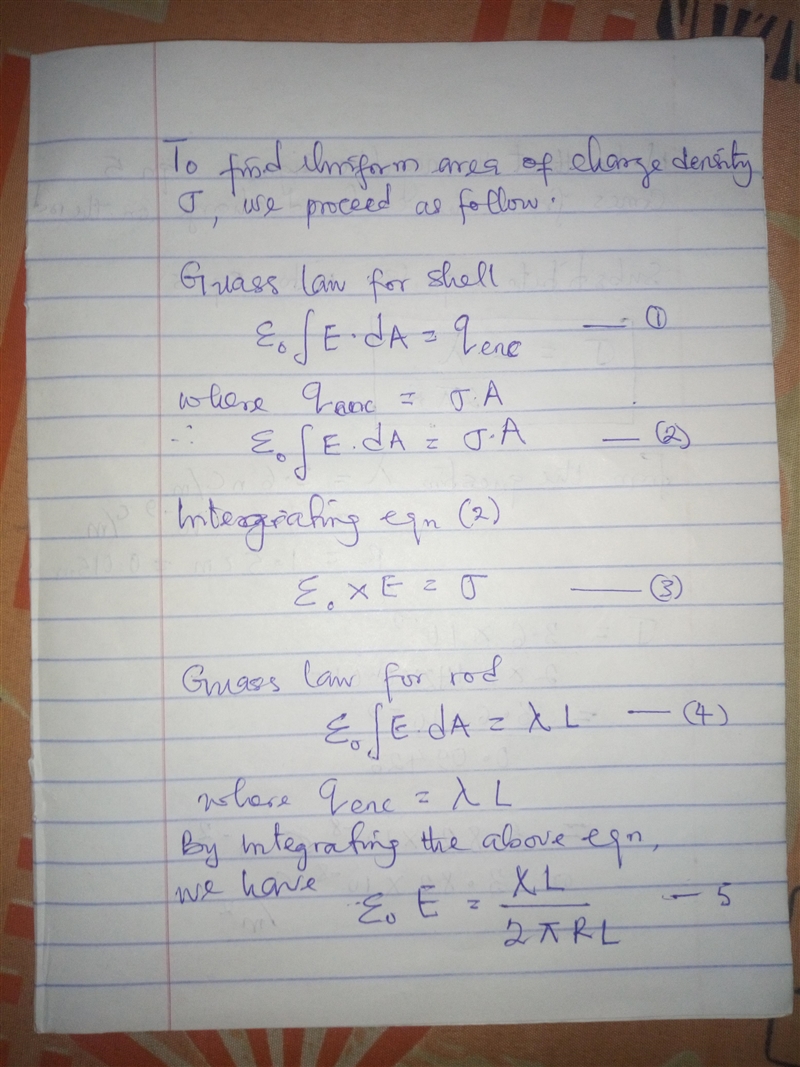 To find Uniform area of charge density
σ, we proceed as follow.
Guass law for shell
ε₀∫E·dA = qenc — ①
where qenc = σ·A
∴ ε₀∫E·dA = σ·A — (2)
Intergrating eqn (2)
ε₀ × E = σ — (3)
Guass law for rod
ε₀∫E·dA = λL — (4)
where qenc = λL
By Integrating the above eqn,
we have ε₀ E = λL / 2πRL — 5